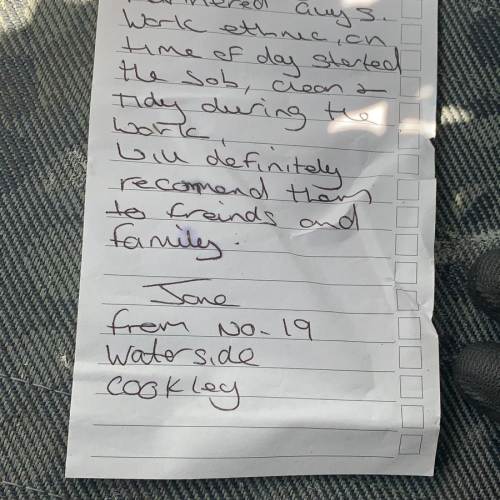 guys.
Work ethnic, on
time of day started
the Job, clean &
tidy during the
work,
will definitely
recommend them
to freinds and
family.
Jane
from No. 19
Waterside
Cookley